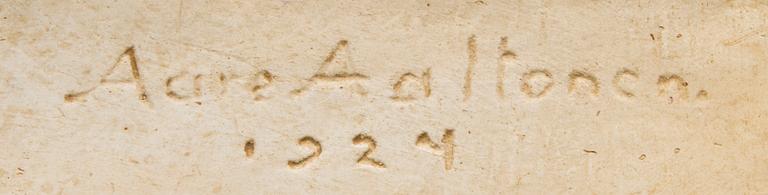 Aarre Aaltonen.
1924